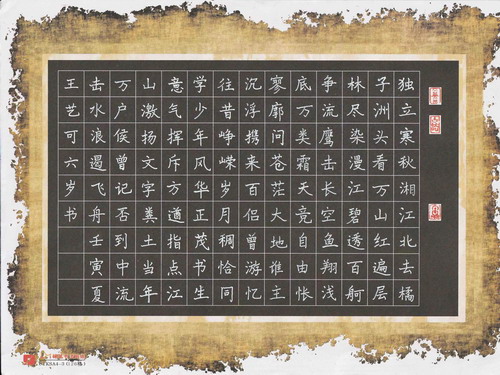 独立寒秋湘江北去橘
子洲头看万山红遍层
林尽染漫江碧透百舸
争流鹰击长空鱼翔浅
底万类霜天竞自由怅
寥廓问苍茫大地谁主
沉浮携来百侣曾游忆
往昔峥嵘岁月稠恰同
学少年风华正茂书生
意气挥斥方遒指点江
山激扬文字粪土当年
万户侯曾记否到中流
击水浪遏飞舟壬寅夏
王艺可六岁书